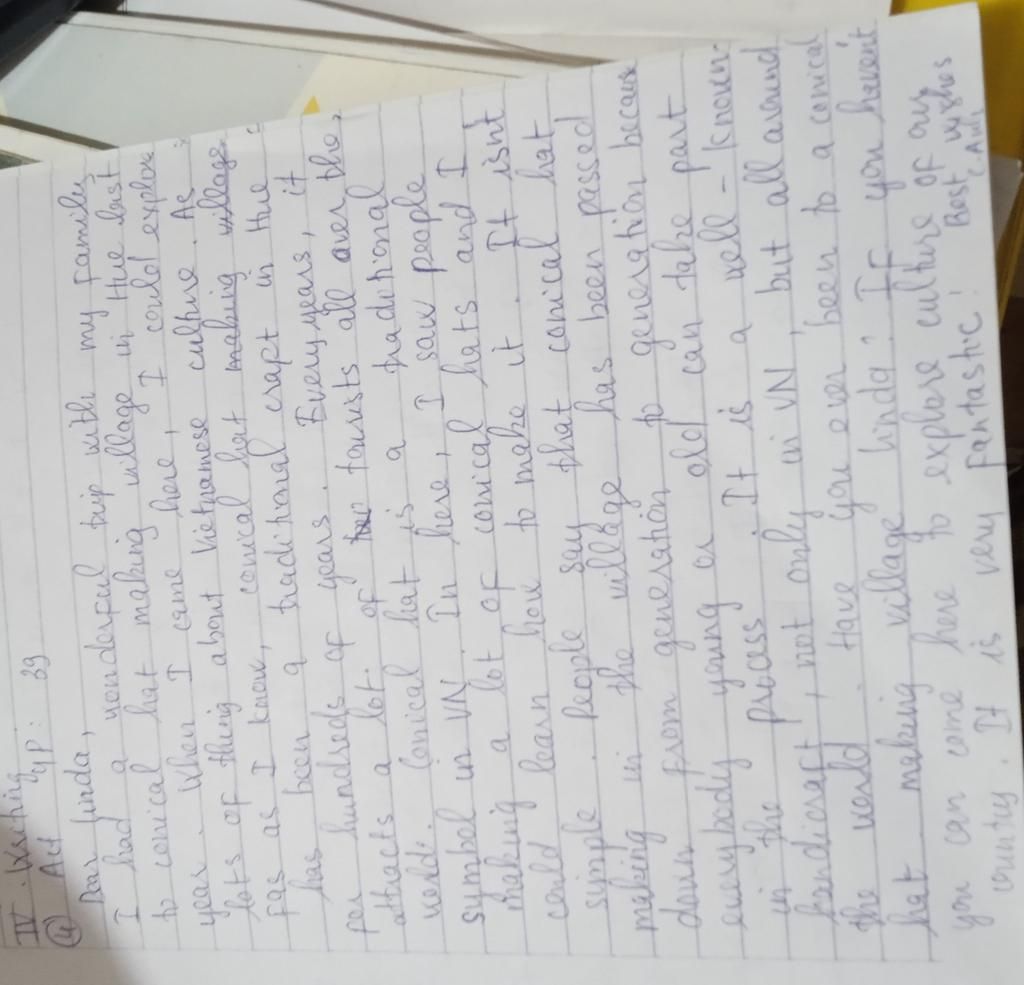 IV. Writing
④ Act 4 P: 39
Dear Linda,
I had a wonderful trip with my family
to conical hat making village in Hue last
year. When I came here, I could explore
lots of thing about Vietnamese culture. As
far as I know, conical hat making village
has been a traditional craft in Hue
for hundreds of years. Every years, it
attracts a lot of tourists all over the
world. Conical hat is a traditional
symbol in VN. In here, I saw people
making a lot of conical hats and I
could learn how to make it. It isn't
simple. People say that conical hat
making in the village has been passed
down from generation to generation because
everybody young or old can take part
in the process. It is a well-known
handicraft, not only in VN, but all around
the world. Have you ever been to a conical
hat making village Linda? If you haven't
you can come here to explore culture of our
country. It is very fantastic! Best wishes